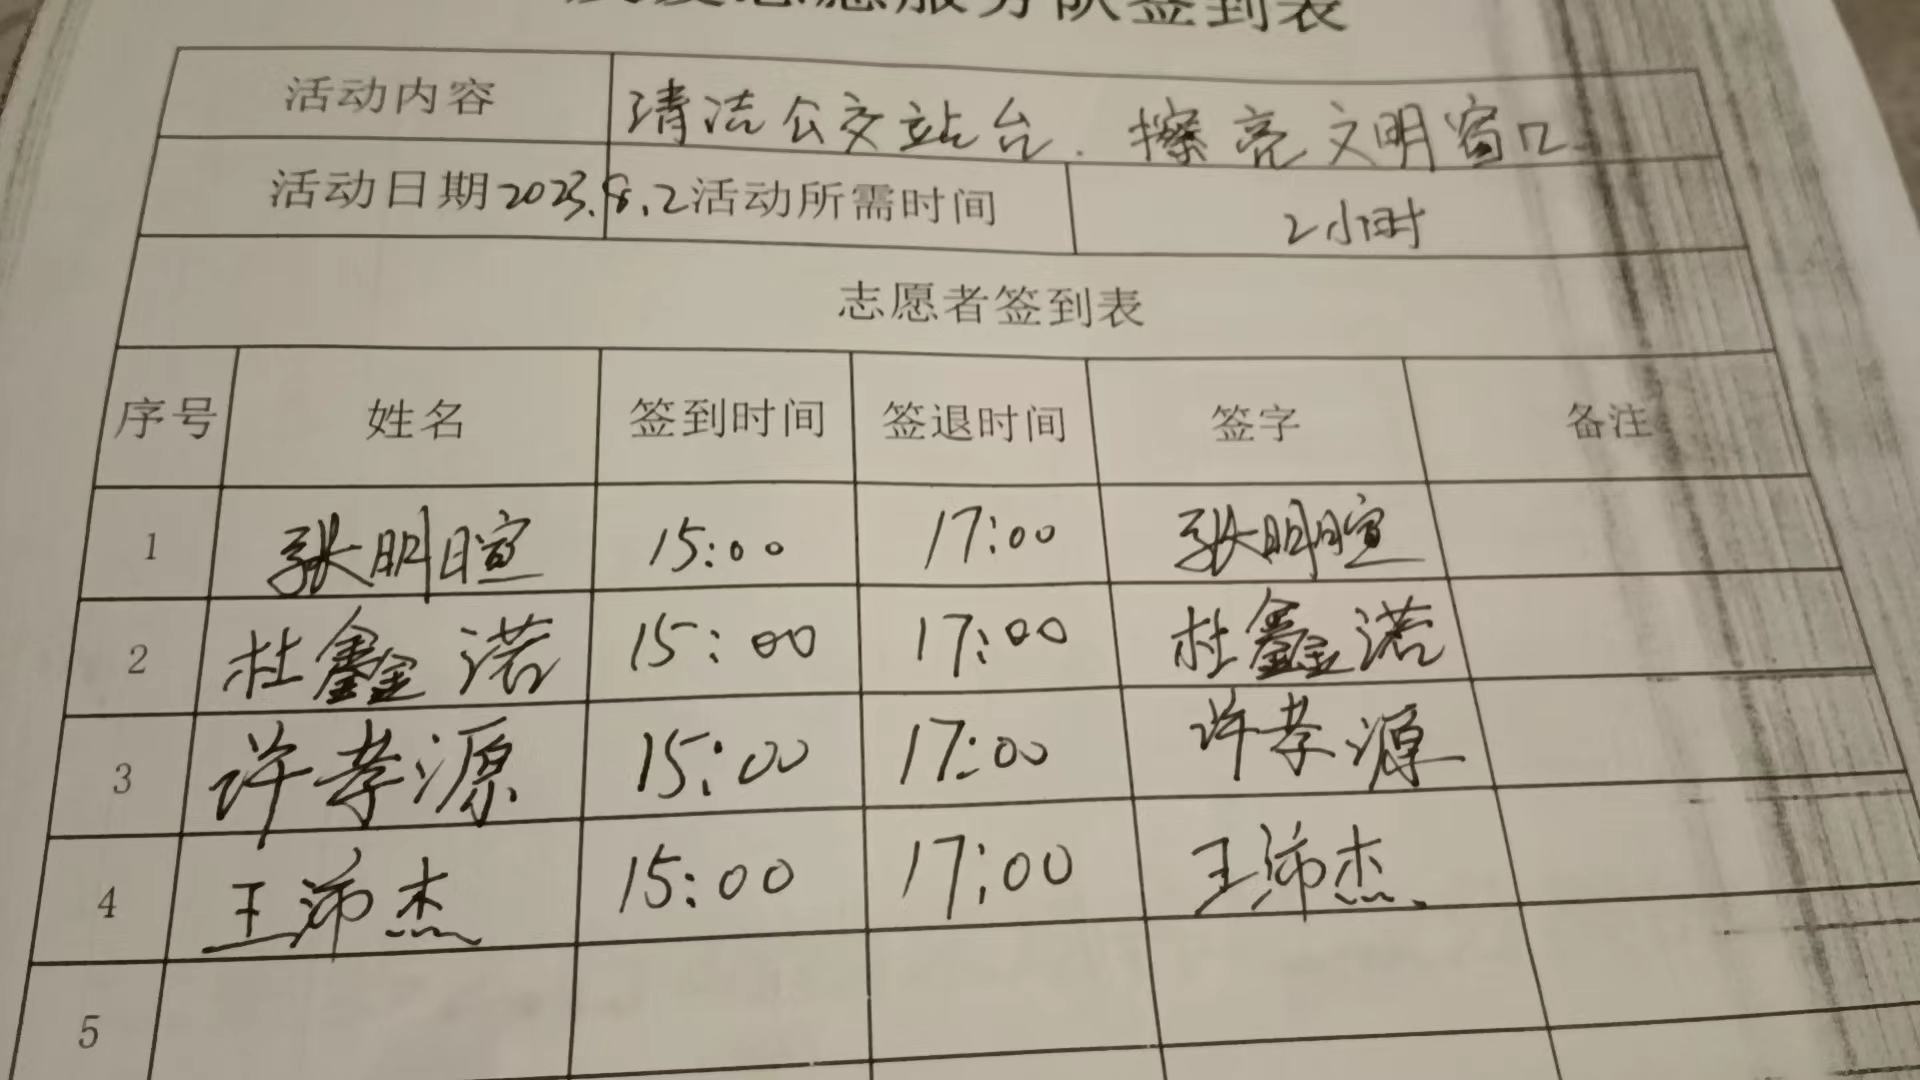 志愿服务队签到表
活动内容 清洁公交站台、擦亮文明窗口
活动日期 2023.8.2 活动所需时间 2小时
志愿者签到表
序号 姓名 签到时间 签退时间 签字 备注
1 张明暄 15:00 17:00 张明暄
2 杜鑫诺 15:00 17:00 杜鑫诺
3 许孝源 15:00 17:00 许孝源
4 王沛杰 15:00 17:00 王沛杰
5